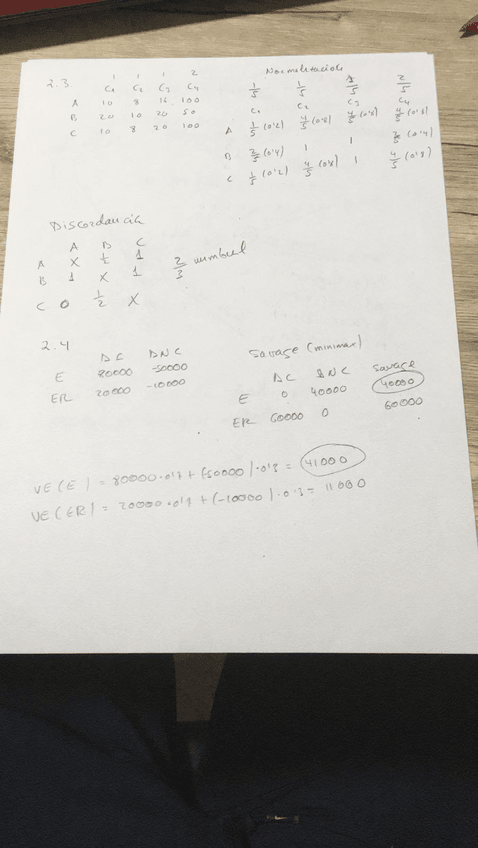 2.3.
1 1 1 2
C1 C2 C3 C4
A 10 8 16 100
B 20 10 20 50
C 10 8 20 100
Normalización
1/5 1/5 1/5 2/5
C1 C2 C3 C4
A 1/5 (0'2) 4/5 (0'8) 4/5 (0'8) 4/5 (0'8)
B 2/5 (0'4) 1 1 2/5 (0'4)
C 1/5 (0'2) 4/5 (0'8) 1 4/5 (0'8)
Discordancia
A B C
A X 1/2 1
B 1 X 1
C 0 1/2 X
2/3 umbral
2.4
DC DNC
E 80000 -50000
ER 20000 -10000
Savage (minimax)
DC DNC Savage
E 0 40000 40000
ER 60000 0 60000
VE(E) = 80000·0'7 + (-50000)·0'3 = 41000
VE(ER) = 20000·0'7 + (-10000)·0'3 = 11000